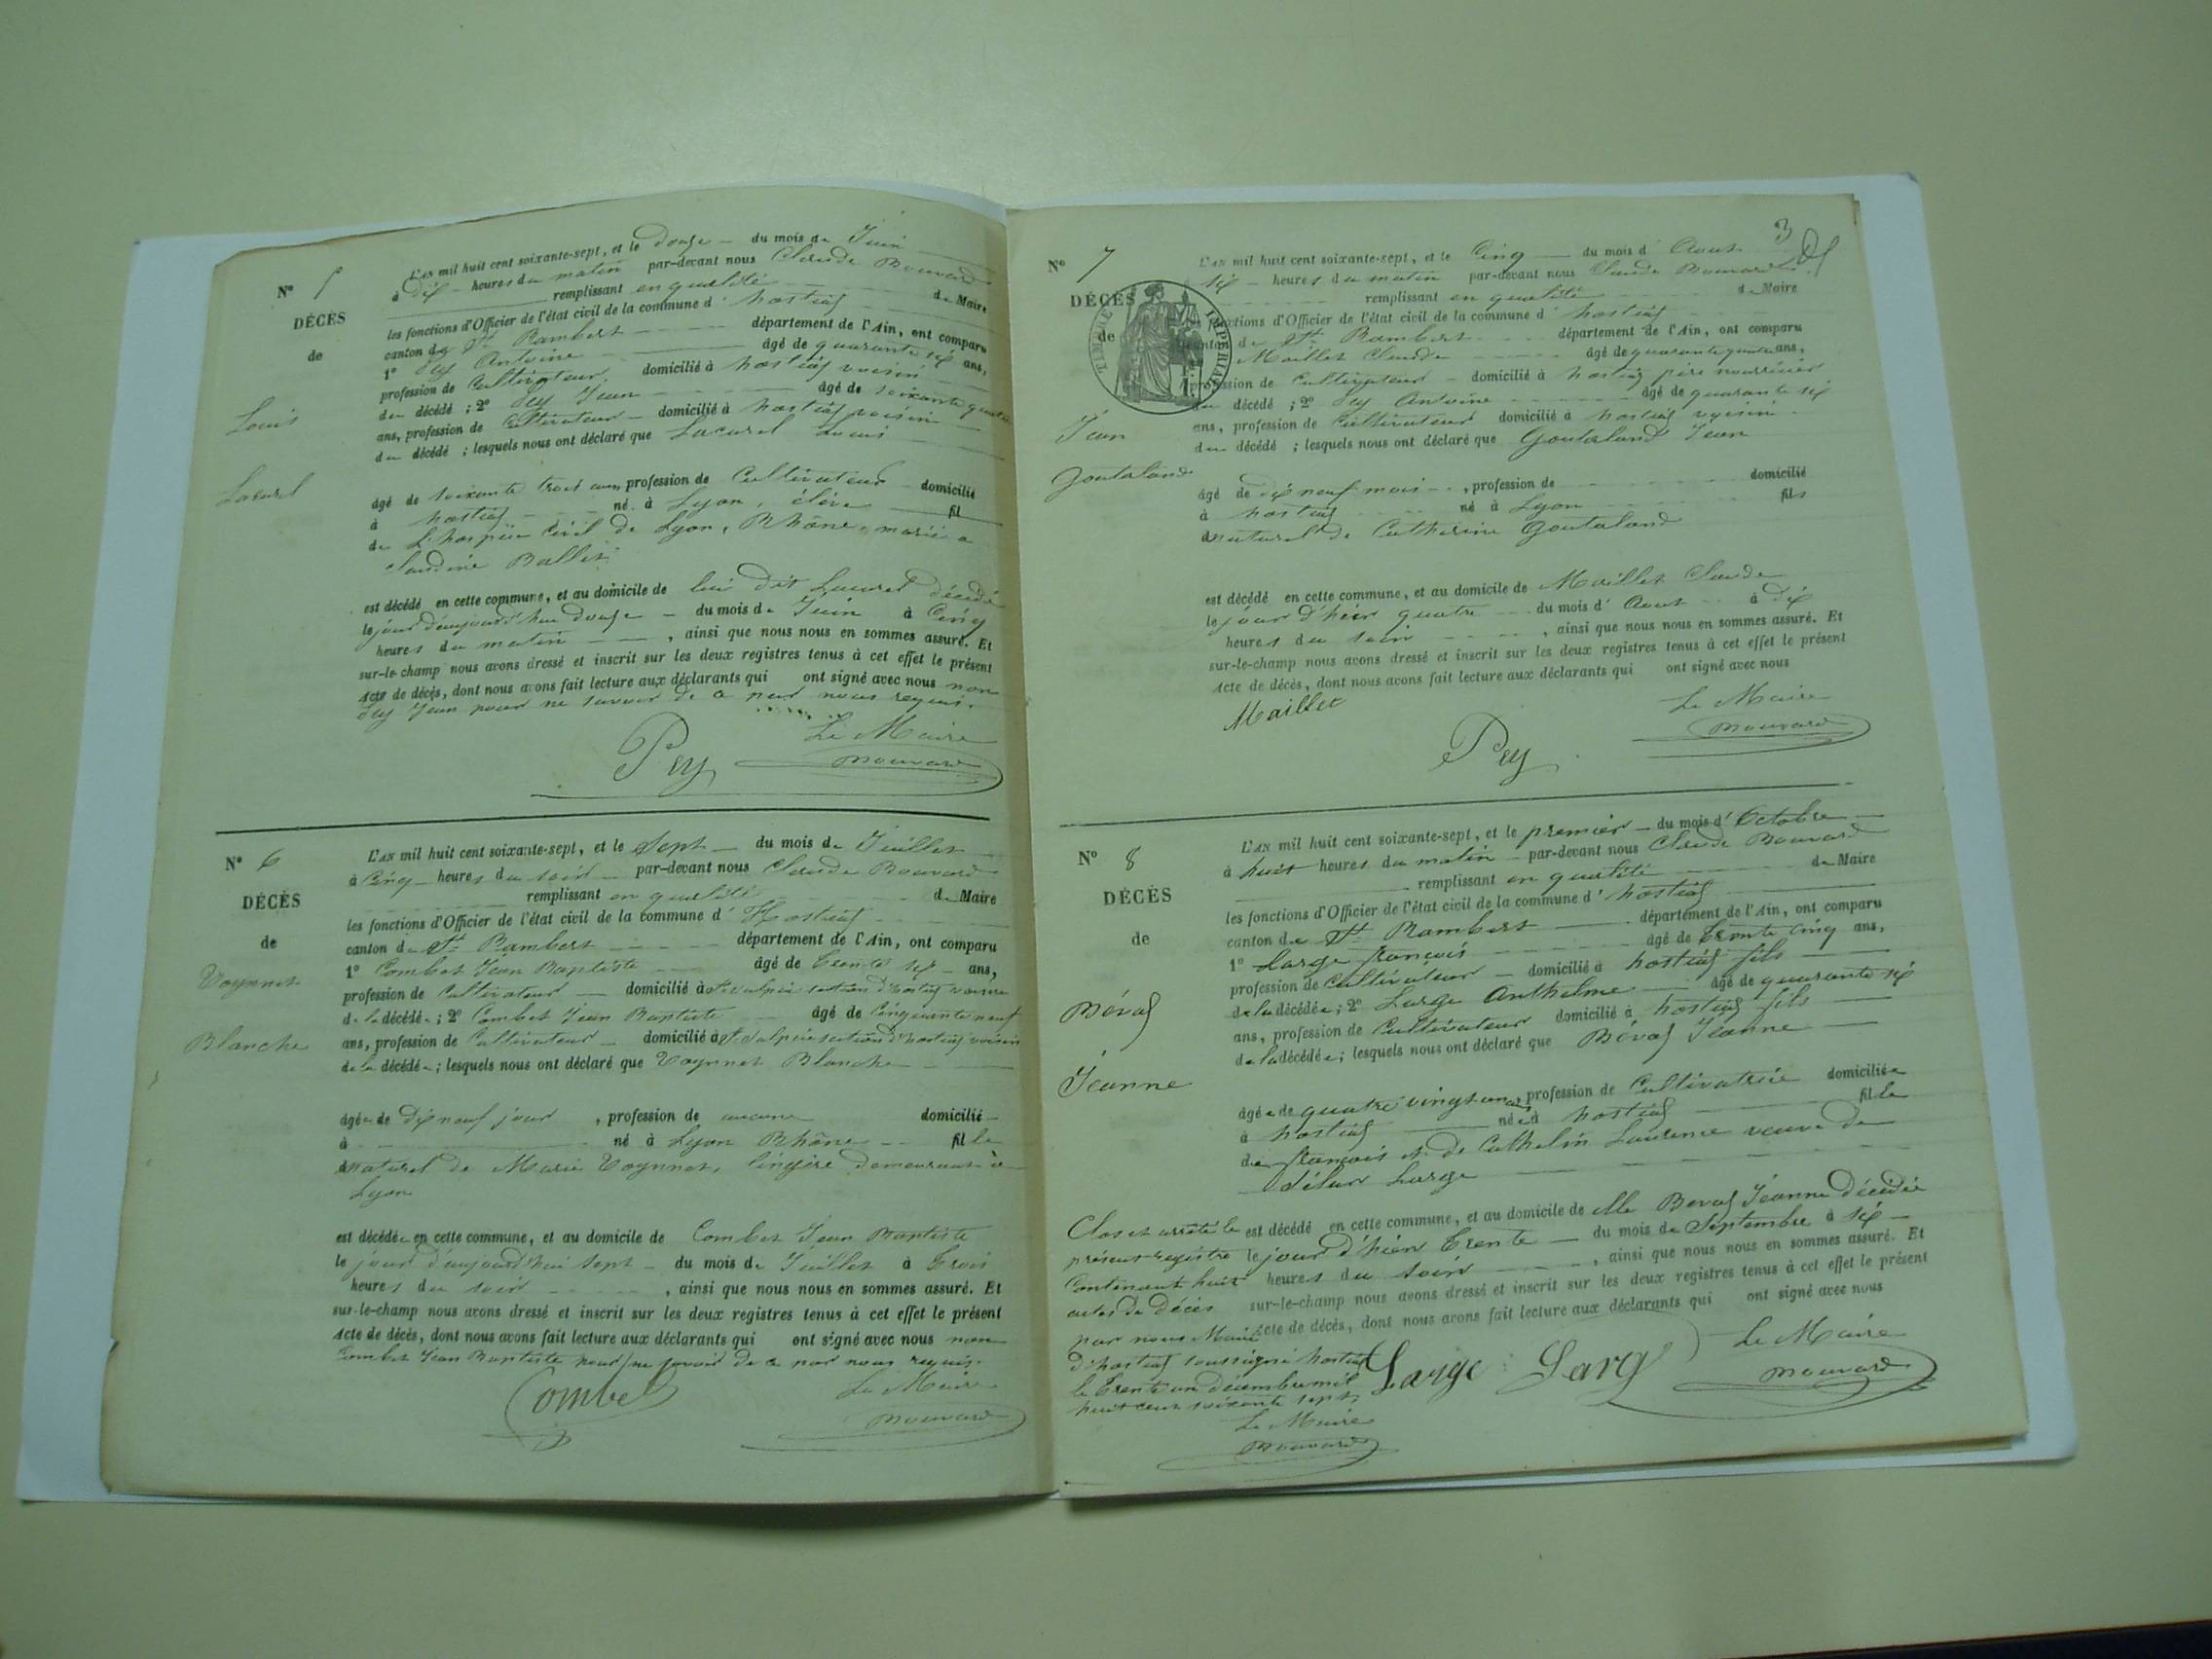 N° 5
DÉCÈS
de
Louis
Lacurel
L'AN mil huit cent soixante-sept, et le douze du mois de Juin
à dix heures du matin par-devant nous Claude Bouvard
remplissant en qualité de Maire
les fonctions d'Officier de l'état civil de la commune d' hostiaz
canton de St Rambert département de l'Ain, ont comparu
1° Pey Antoine âgé de quarante six ans,
profession de Cultivateur domicilié à hostiaz voisin
du décédé ; 2° Pey Jean âgé de soixante quatre
ans, profession de Cultivateur domicilié à hostiaz voisin
du décédé ; lesquels nous ont déclaré que Lacurel Louis
âgé de soixante trois ans profession de Cultivateur domicilié
à hostiaz né à Lyon, élève fil
de L'hospice Civil de Lyon, Rhône, marié a
Claudine Ballet
est décédé en cette commune, et au domicile de lui dit Lacurel décédé
le jour d'aujourd'hui douze du mois de Juin à Cinq
heures du matin , ainsi que nous nous en sommes assuré. Et
sur-le-champ nous avons dressé et inscrit sur les deux registres tenus à cet effet le présent
Acte de décès, dont nous avons fait lecture aux déclarants qui ont signé avec nous non
Pey Jean pour ne savoir de ce par nous requis.
Le Maire
Pey Bouvard
N° 6
DÉCÈS
de
Voynnet
Blanche
L'AN mil huit cent soixante-sept, et le Sept du mois de Juillet
à Cinq heures du soir par-devant nous Claude Bouvard
remplissant en qualité de Maire
les fonctions d'Officier de l'état civil de la commune d' Hostiaz
canton de St Rambert département de l'Ain, ont comparu
1° Combet Jean Baptiste âgé de trente six ans,
profession de Cultivateur domicilié à section d'hostiaz voisin
de la décédée ; 2° Combet Jean Baptiste âgé de Cinquante neuf
ans, profession de Cultivateur domicilié à section d'hostiaz voisin
de la décédée ; lesquels nous ont déclaré que Voynnet Blanche
âgée de dix neuf jour , profession de aucune domicilié
à né à Lyon Rhône fille
naturel de Marie Voynnet, lingère demeurant à
Lyon
est décédée en cette commune, et au domicile de Combet Jean Baptiste
le jour d'aujourd'hui sept du mois de Juillet à trois
heures du soir , ainsi que nous nous en sommes assuré. Et
sur-le-champ nous avons dressé et inscrit sur les deux registres tenus à cet effet le présent
Acte de décès, dont nous avons fait lecture aux déclarants qui ont signé avec nous non
Combet Jean Baptiste pour ne savoir de ce par nous requis.
Le Maire
Combet Bouvard
3
N° 7
DÉCÈS
de
TIMBRE IMPÉRIAL
Jean
Goutaland
L'AN mil huit cent soixante-sept, et le Cinq du mois d' Aout
six heures du matin par-devant nous Claude Bouvard
remplissant en qualité de Maire
fonctions d'Officier de l'état civil de la commune d' hostiaz
de St Rambert département de l'Ain, ont comparu
Maillet Claude âgé de quarante quatre ans,
profession de Cultivateur domicilié à hostiaz père nourricier
du décédé ; 2° Pey Antoine âgé de quarante six
ans, profession de Cultivateur domicilié à hostiaz voisin
du décédé ; lesquels nous ont déclaré que Goutaland Jean
âgé de dix neuf mois , profession de domicilié
à hostiaz né à Lyon fils
naturel de Catherine Goutaland
est décédé en cette commune, et au domicile de Maillet Claude
le jour d'hier quatre du mois d' Aout à dix
heures du soir , ainsi que nous nous en sommes assuré. Et
sur-le-champ nous avons dressé et inscrit sur les deux registres tenus à cet effet le présent
Acte de décès, dont nous avons fait lecture aux déclarants qui ont signé avec nous
Maillet Le Maire
Pey Bouvard
N° 8
DÉCÈS
de
Bévaz
Jeanne
L'AN mil huit cent soixante-sept, et le premier du mois d' Octobre
à huit heures du matin par-devant nous Claude Bouvard
remplissant en qualité de Maire
les fonctions d'Officier de l'état civil de la commune d' hostiaz
canton de St Rambert département de l'Ain, ont comparu
1° Large françois âgé de trente Cinq ans,
profession de Cultivateur domicilié à hostiaz fils
de la décédée ; 2° Large Anthelme âgé de quarante six
ans, profession de Cultivateur domicilié à hostiaz fils
de la décédée ; lesquels nous ont déclaré que Bévaz Jeanne
âgée de quatre vingt un ans profession de Cultivatrice domiciliée
à hostiaz née à hostiaz fille
de françois et de Cathelin Laurence veuve de
Large
est décédé en cette commune, et au domicile de elle Bevaz Jeanne décédée
le jour d'hier trente du mois de Septembre à six
heures du soir , ainsi que nous nous en sommes assuré. Et
sur-le-champ nous avons dressé et inscrit sur les deux registres tenus à cet effet le présent
Acte de décès, dont nous avons fait lecture aux déclarants qui ont signé avec nous
Large Larg Le Maire
Bouvard
Clos et arrêté le
présent registre
Contenant huit
actes de décès
par nous Maire
d'hostiaz soussigné hostiaz
le trente un décembre mil
huit cent soixante sept
Le Maire
Bouvard